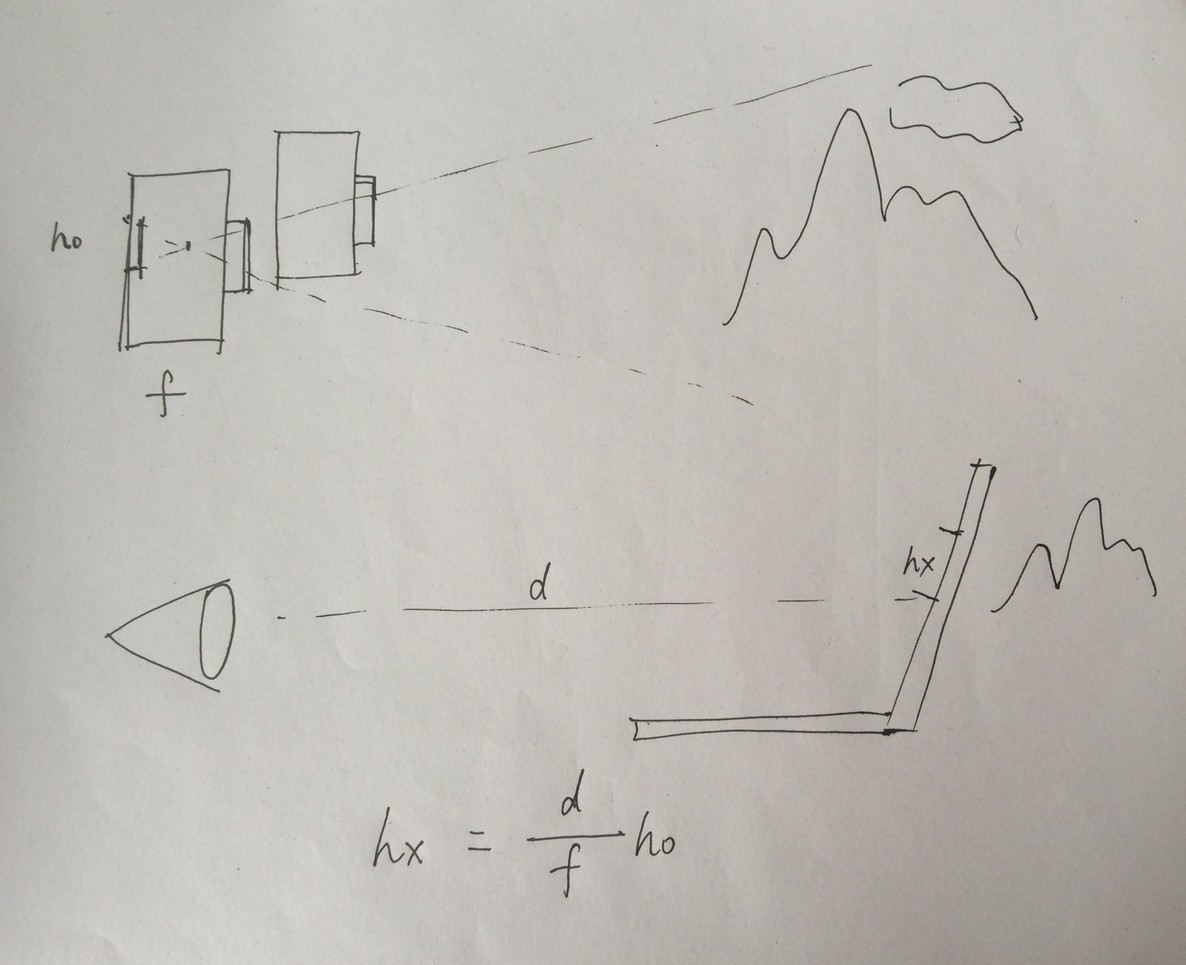 ho
f
d
hx
hx = d/f ho